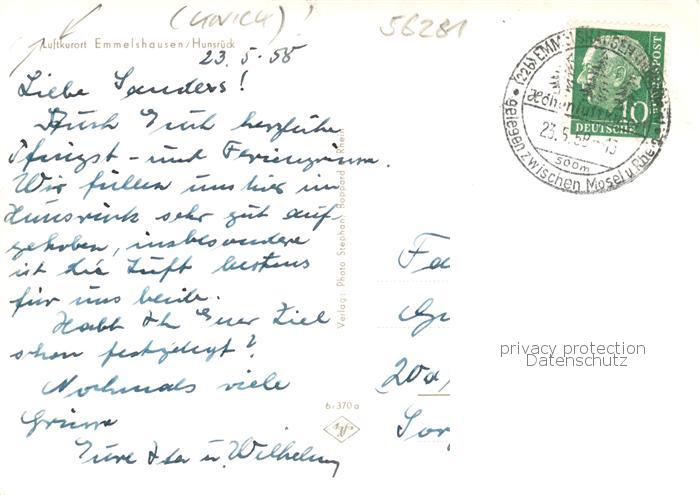 (HUNSRÜCK)!
56281
Luftkurort Emmelshausen/Hunsrück
23.5.58
Liebe Sanders!
Auch Euch herzliche
Pfingst- und Feriengrüsse.
Wir fühlen uns hier im
Hunsrück sehr gut auf-
gehoben, insbesondere
ist die Luft bestens
für uns beide.
Habt Ihr Euer Ziel
schon festgelegt?
Nochmals viele
Grüsse
Eure u. Wilhelm
Verlag: Photo Stephan Boppard Rhein
6-370a
(22b) EMMELSHAUSEN
Höhenluftkurort
23.5.58
500m
gelegen zwischen Mosel u. Rhein
10
DEUTSCHE BUNDESPOST
20a,
privacy protection
Datenschutz